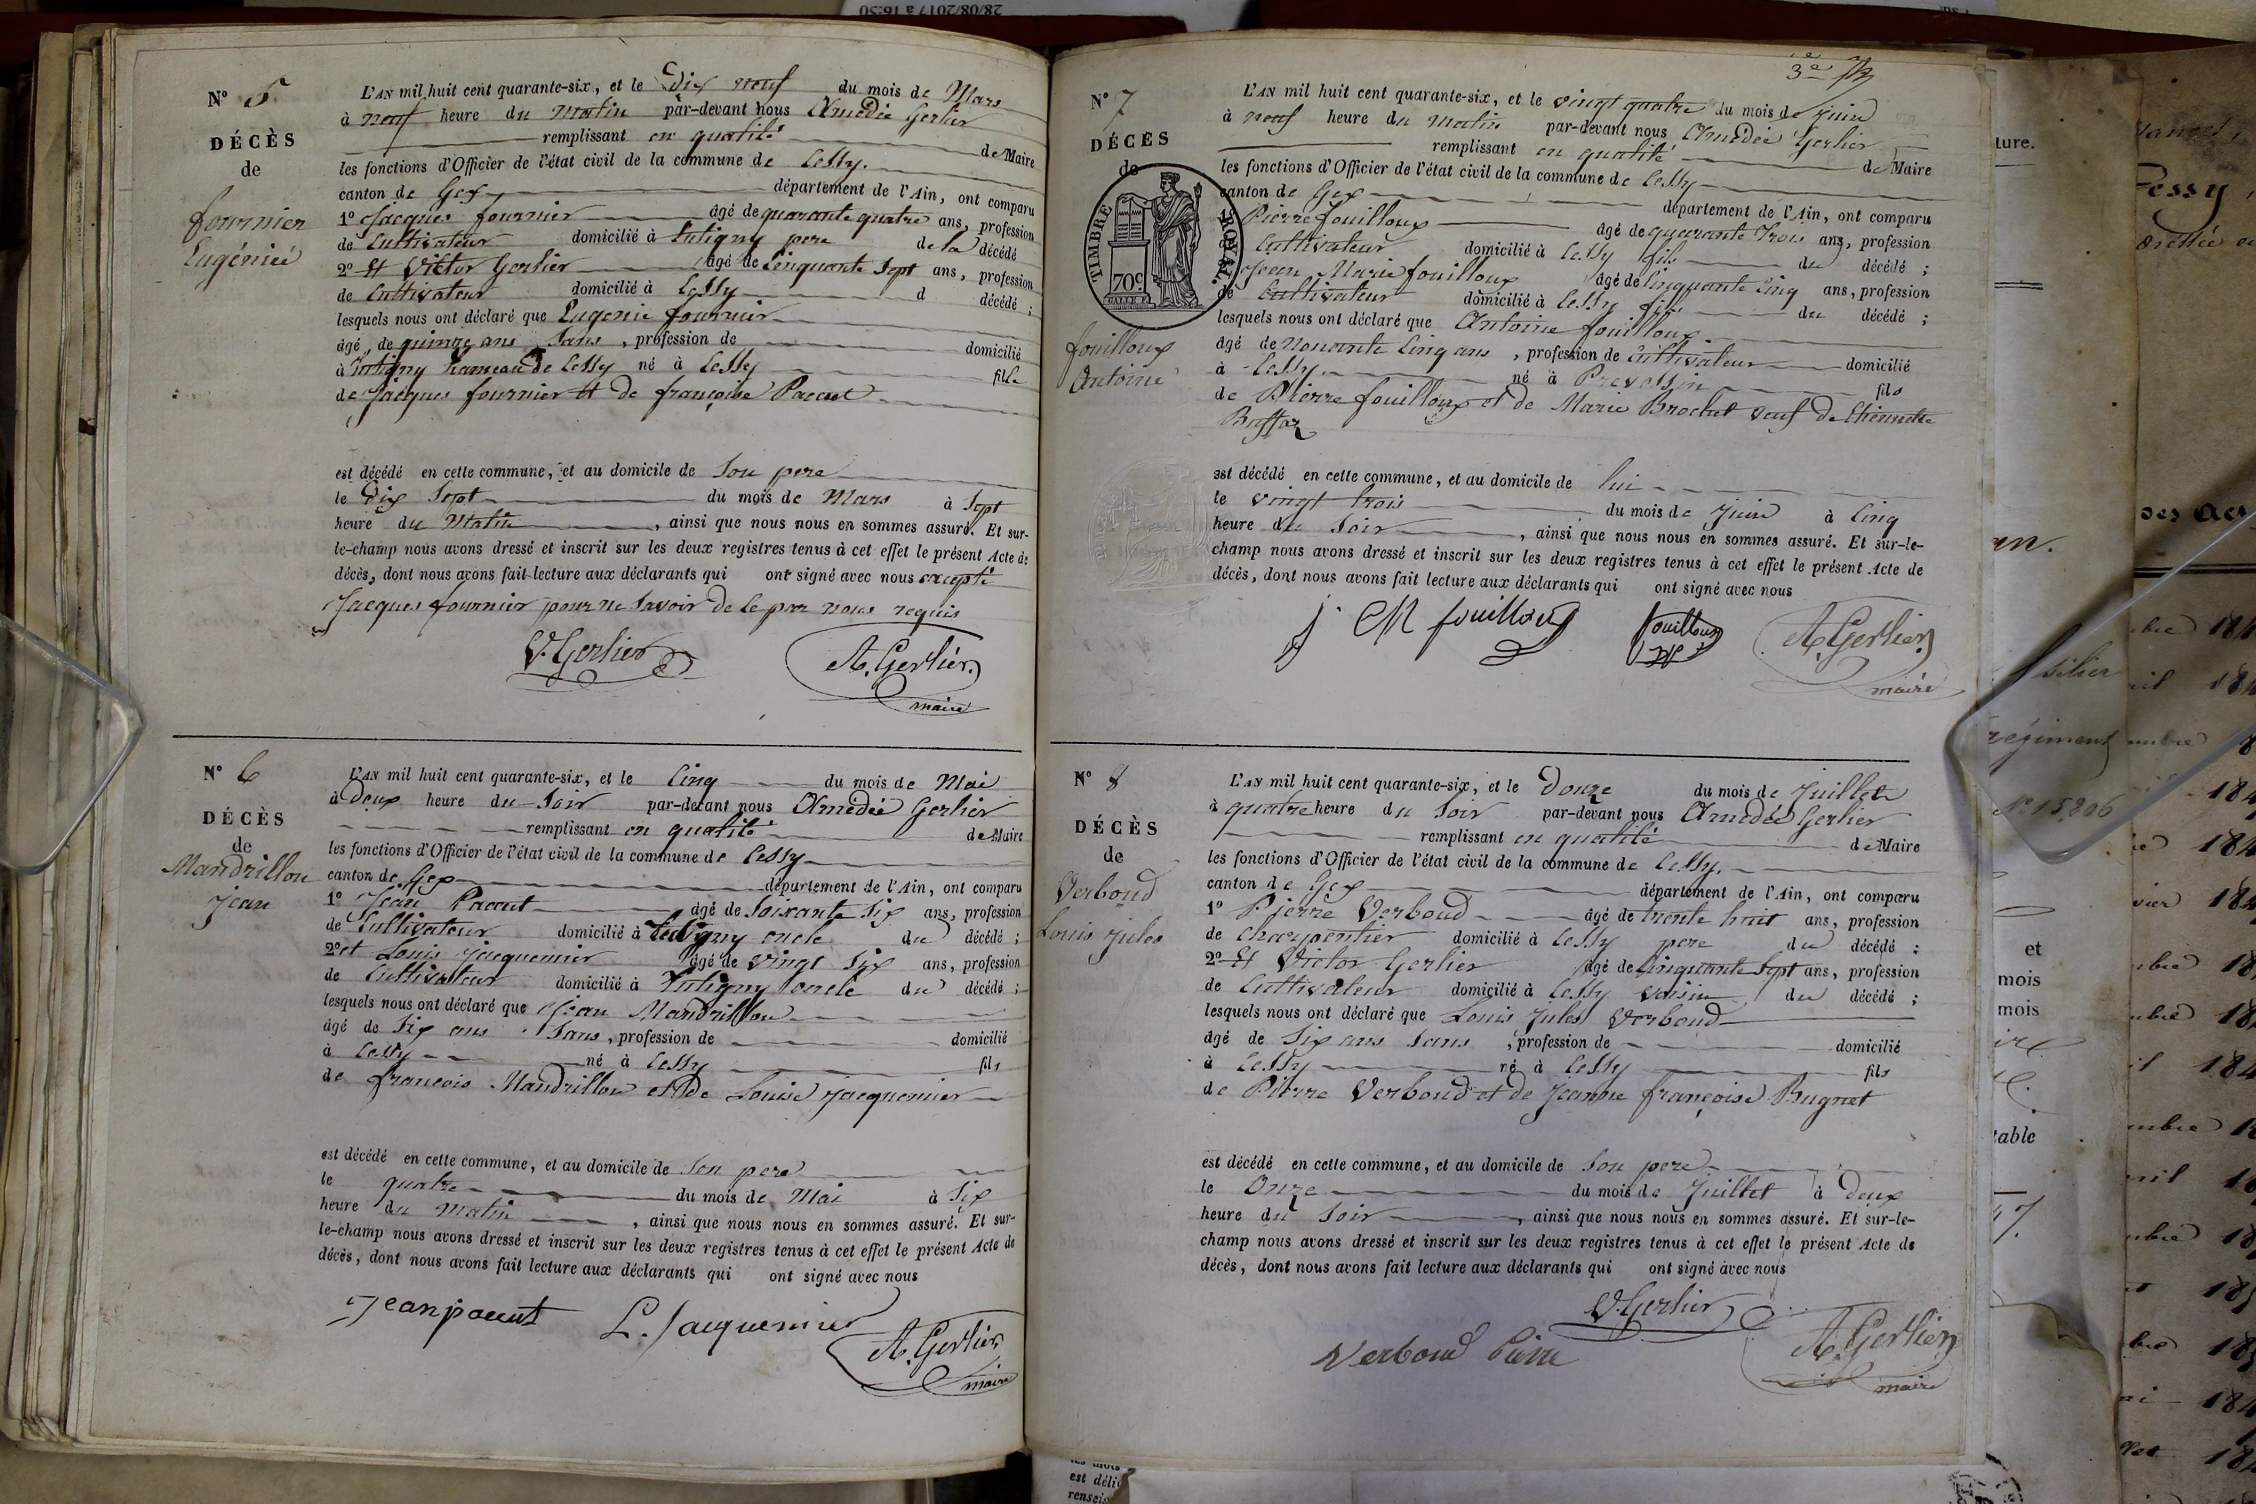 28/08/2017 à 16:50
N° 5
DÉCÈS
de
fournier
Eugénie
L'AN mil huit cent quarante-six, et le Dix neuf du mois de Mars
à neuf heure du Matin par-devant nous Amédée Gerlier
remplissant en qualité de Maire
les fonctions d'Officier de l'état civil de la commune de Cessy.
canton de Gex département de l'Ain, ont comparu
1° Jacques fournier âgé de quarante quatre ans, profession
de Cultivateur domicilié à Tutigny pere de la décédé
2° Et Victor Gerlier âgé de Cinquante Sept ans, profession
de Cultivateur domicilié à Cessy d décédé ;
lesquels nous ont déclaré que Eugenie fournier
âgé de quinze ans Sans, profession de domicilié
à Tutigny hameau de Cessy né à Cessy fille
de Jacques fournier Et de françoise Paccut
est décédé en cette commune, et au domicile de Son pere
le Dix Sept du mois de Mars à Sept
heure du Matin, ainsi que nous nous en sommes assuré. Et sur-
le-champ nous avons dressé et inscrit sur les deux registres tenus à cet effet le présent Acte de
décès, dont nous avons fait lecture aux déclarants qui ont signé avec nous excepté
Jacques fournier pour ne Savoir de ce par nous requis
V. Gerlier A. Gerlier
maire
N° 6
DÉCÈS
de
Mandrillon
Jean
L'AN mil huit cent quarante-six, et le Cinq du mois de Mai
à deux heure du Soir par-devant nous Amédée Gerlier
remplissant en qualité de Maire
les fonctions d'Officier de l'état civil de la commune de Cessy
canton de Gex département de l'Ain, ont comparu
1° Jean Paccut âgé de Soixante Six ans, profession
de Cultivateur domicilié à Tutigny oncle du décédé ;
2° et Louis Jacquemier âgé de vingt Six ans, profession
de Cultivateur domicilié à Tutigny oncle du décédé ;
lesquels nous ont déclaré que Jean Mandrillon
âgé de Six ans Sans, profession de domicilié
à Cessy né à Cessy fils
de françois Mandrillon et de Louise Jacquemier
est décédé en cette commune, et au domicile de Son pere
le quatre du mois de Mai à Six
heure du Matin, ainsi que nous nous en sommes assuré. Et sur-
le-champ nous avons dressé et inscrit sur les deux registres tenus à cet effet le présent Acte de
décès, dont nous avons fait lecture aux déclarants qui ont signé avec nous
Jean paccut L. Jacquemier
A. Gerlier
maire
3e
N° 7
DÉCÈS
de
TIMBRE ROYAL.
70c
fouilloux
Antoine
L'AN mil huit cent quarante-six, et le vingt quatre du mois de Juin
à neuf heure du Matin par-devant nous Amédée Gerlier
remplissant en qualité de Maire
les fonctions d'Officier de l'état civil de la commune de Cessy
canton de Gex département de l'Ain, ont comparu
Pierre fouilloux âgé de quarante trois ans, profession
de Cultivateur domicilié à Cessy fils du décédé ;
Jean Marie fouilloux âgé de Cinquante Cinq ans, profession
de Cultivateur domicilié à Cessy fils du décédé ;
lesquels nous ont déclaré que Antoine fouilloux
âgé de Nonante Cinq ans, profession de Cultivateur domicilié
à Cessy né à Prevessin fils
de Pierre fouilloux et de Marie Brochet veuf de Etiennette
Buffaz
est décédé en cette commune, et au domicile de lui
le vingt trois du mois de Juin à Cinq
heure du Soir, ainsi que nous nous en sommes assuré. Et sur-le-
champ nous avons dressé et inscrit sur les deux registres tenus à cet effet le présent Acte de
décès, dont nous avons fait lecture aux déclarants qui ont signé avec nous
j. M fouilloux fouilloux A. Gerlier
maire
N° 8
DÉCÈS
de
Verboud
Louis Jules
L'AN mil huit cent quarante-six, et le Douze du mois de Juillet
à quatre heure du Soir par-devant nous Amédée Gerlier
remplissant en qualité de Maire
les fonctions d'Officier de l'état civil de la commune de Cessy.
canton de Gex département de l'Ain, ont comparu
1° Pierre Verboud âgé de trente huit ans, profession
de charpentier domicilié à Cessy pere du décédé ;
2° Et Victor Gerlier âgé de Cinquante Sept ans, profession
de Cultivateur domicilié à Cessy voisin du décédé ;
lesquels nous ont déclaré que Louis Jules Verboud
âgé de Six ans Sans, profession de domicilié
à Cessy né à Cessy fils
de Pierre Verboud et de Jeanne françoise Bugnet
est décédé en cette commune, et au domicile de Son pere
le Onze du mois de Juillet à deux
heure du Soir, ainsi que nous nous en sommes assuré. Et sur-le-
champ nous avons dressé et inscrit sur les deux registres tenus à cet effet le présent Acte de
décès, dont nous avons fait lecture aux déclarants qui ont signé avec nous
V. Gerlier
Verboud Pierre A. Gerlier
maire
ture.
régiment
N° 15,206
et
mois
mois
table
est déli
rensei